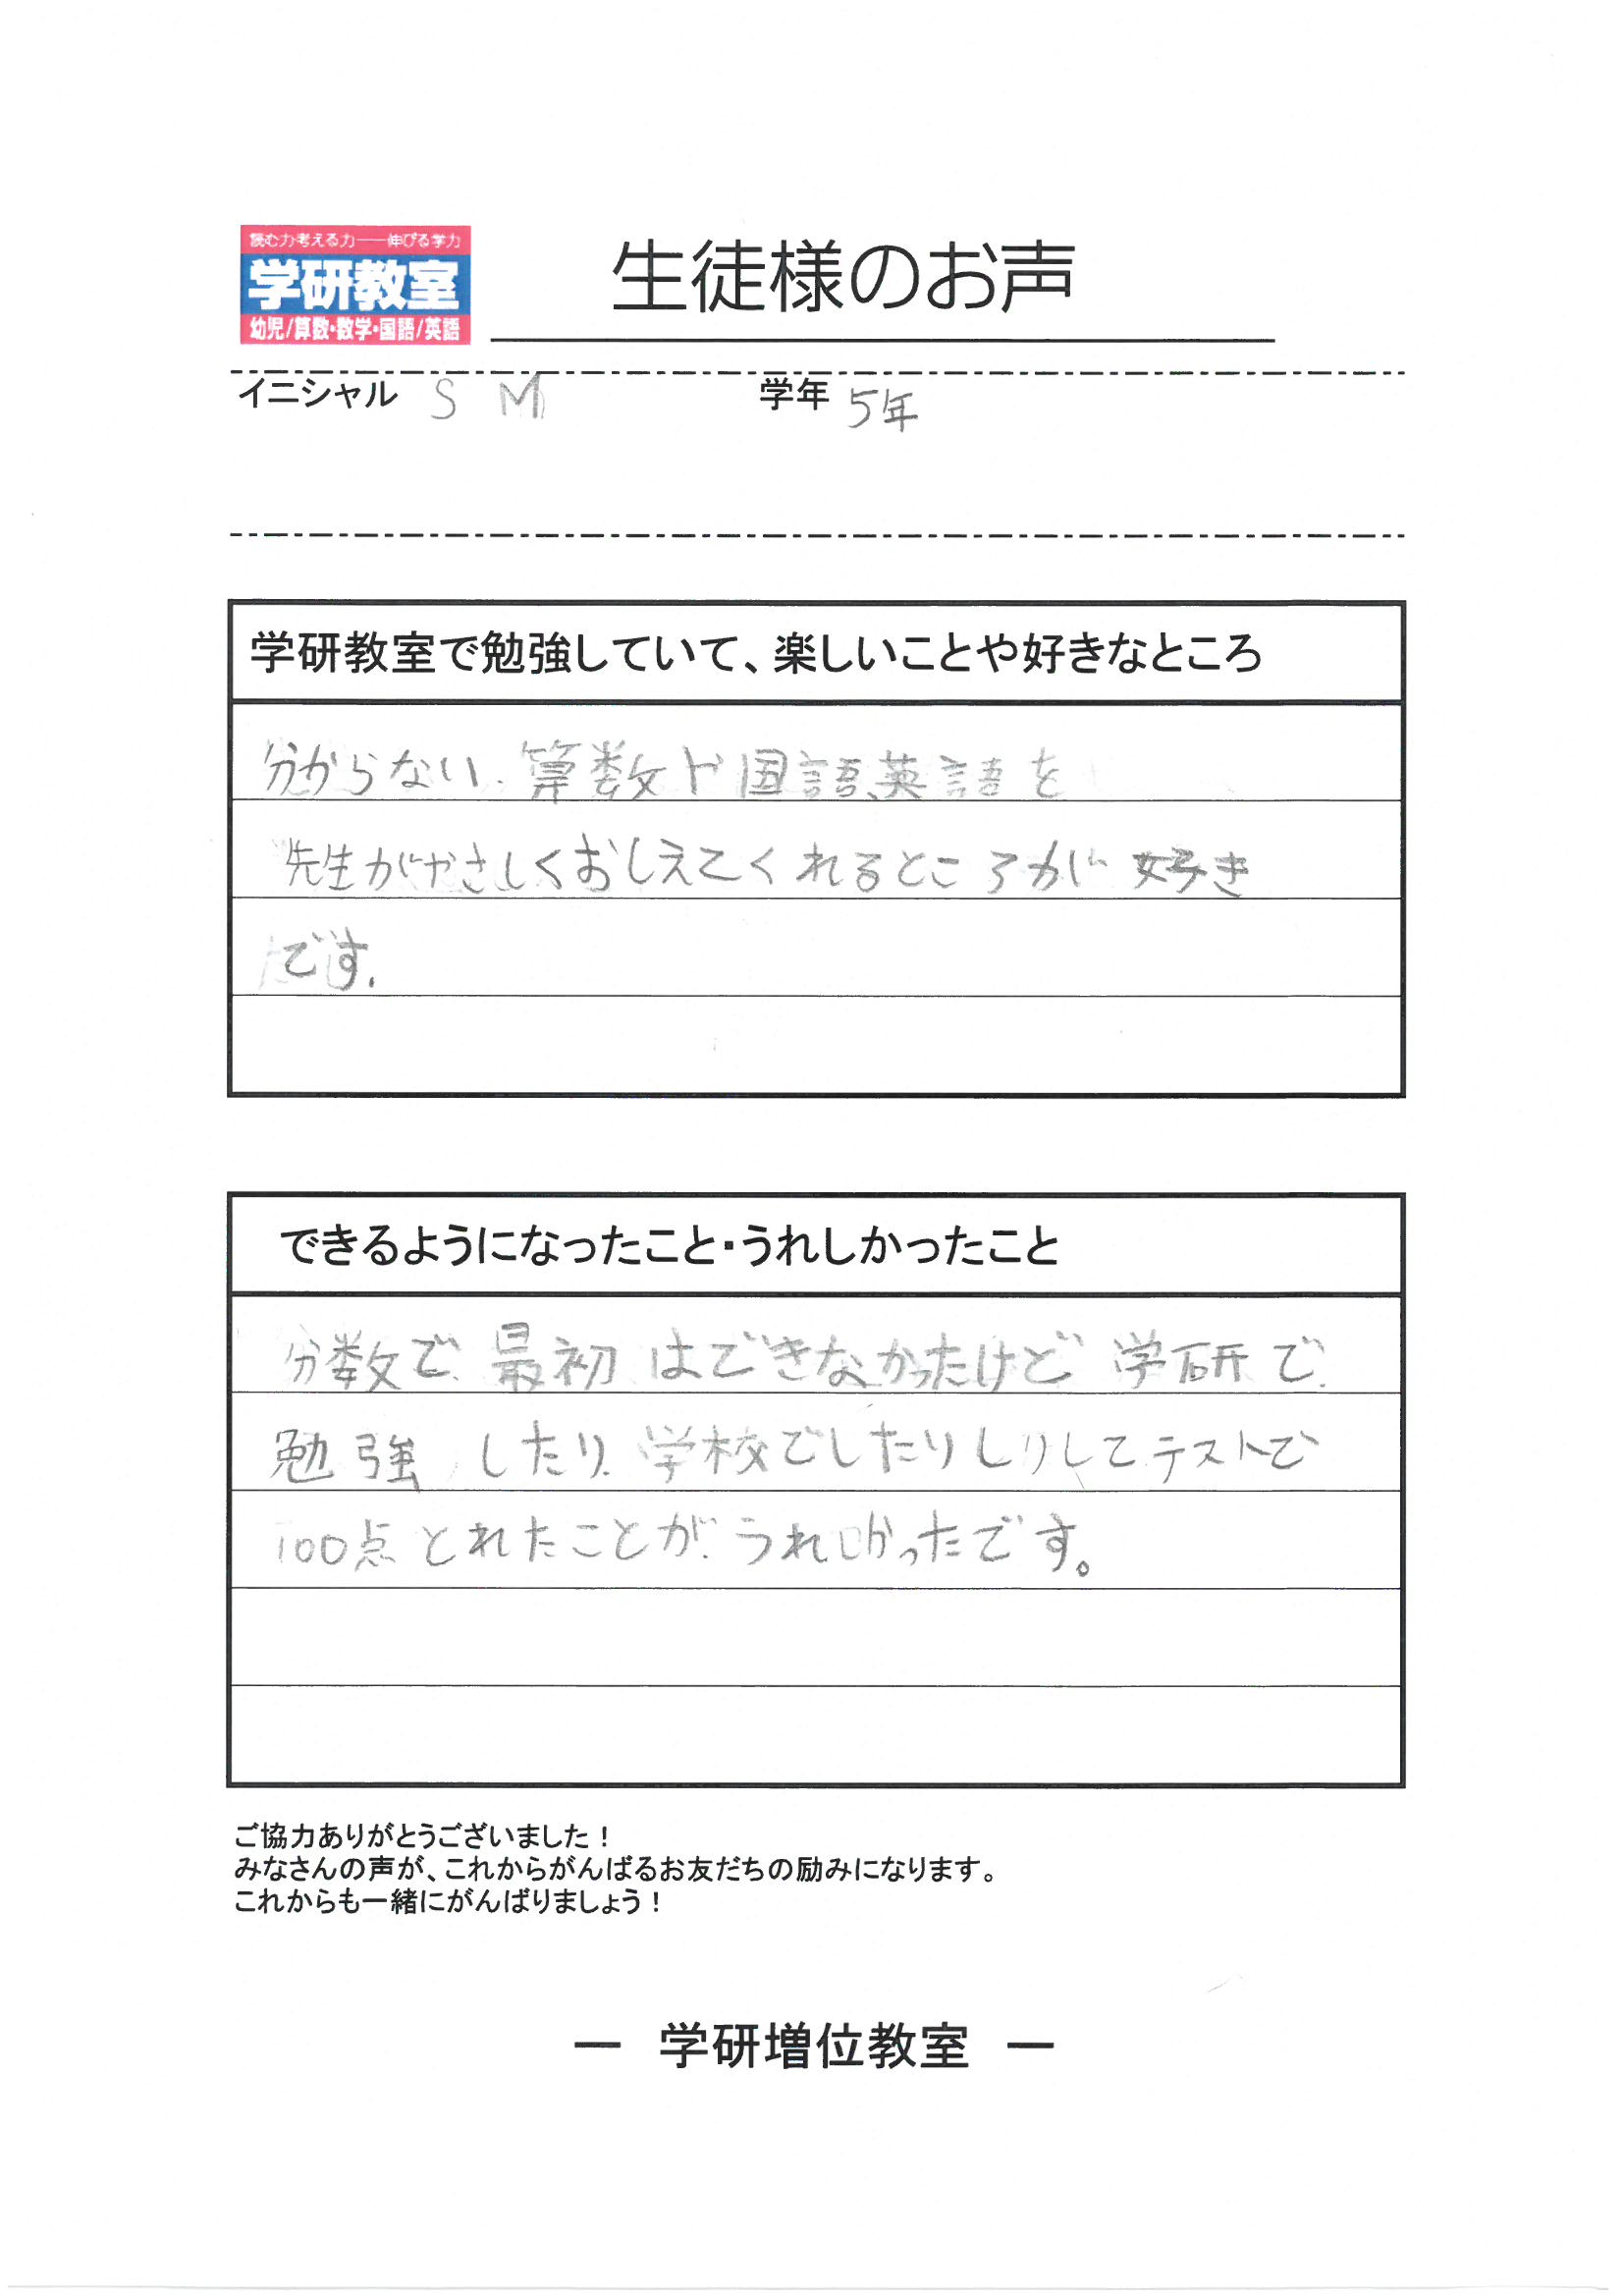 読む力考える力──伸びる学力
学研教室
幼児/算数・数学・国語/英語
生徒様のお声
イニシャル S M 学年 5年
学研教室で勉強していて、楽しいことや好きなところ
分からない、算数や国語、英語を
先生がやさしくおしえてくれるところが好き
です.
できるようになったこと・うれしかったこと
分数で、最初はできなかったけど学研で、
勉強したり、学校でしたりしりしてテストで
100点とれたことが、うれしかったです。
ご協力ありがとうございました！
みなさんの声が、これからがんばるお友だちの励みになります。
これからも一緒にがんばりましょう！
― 学研増位教室 ―